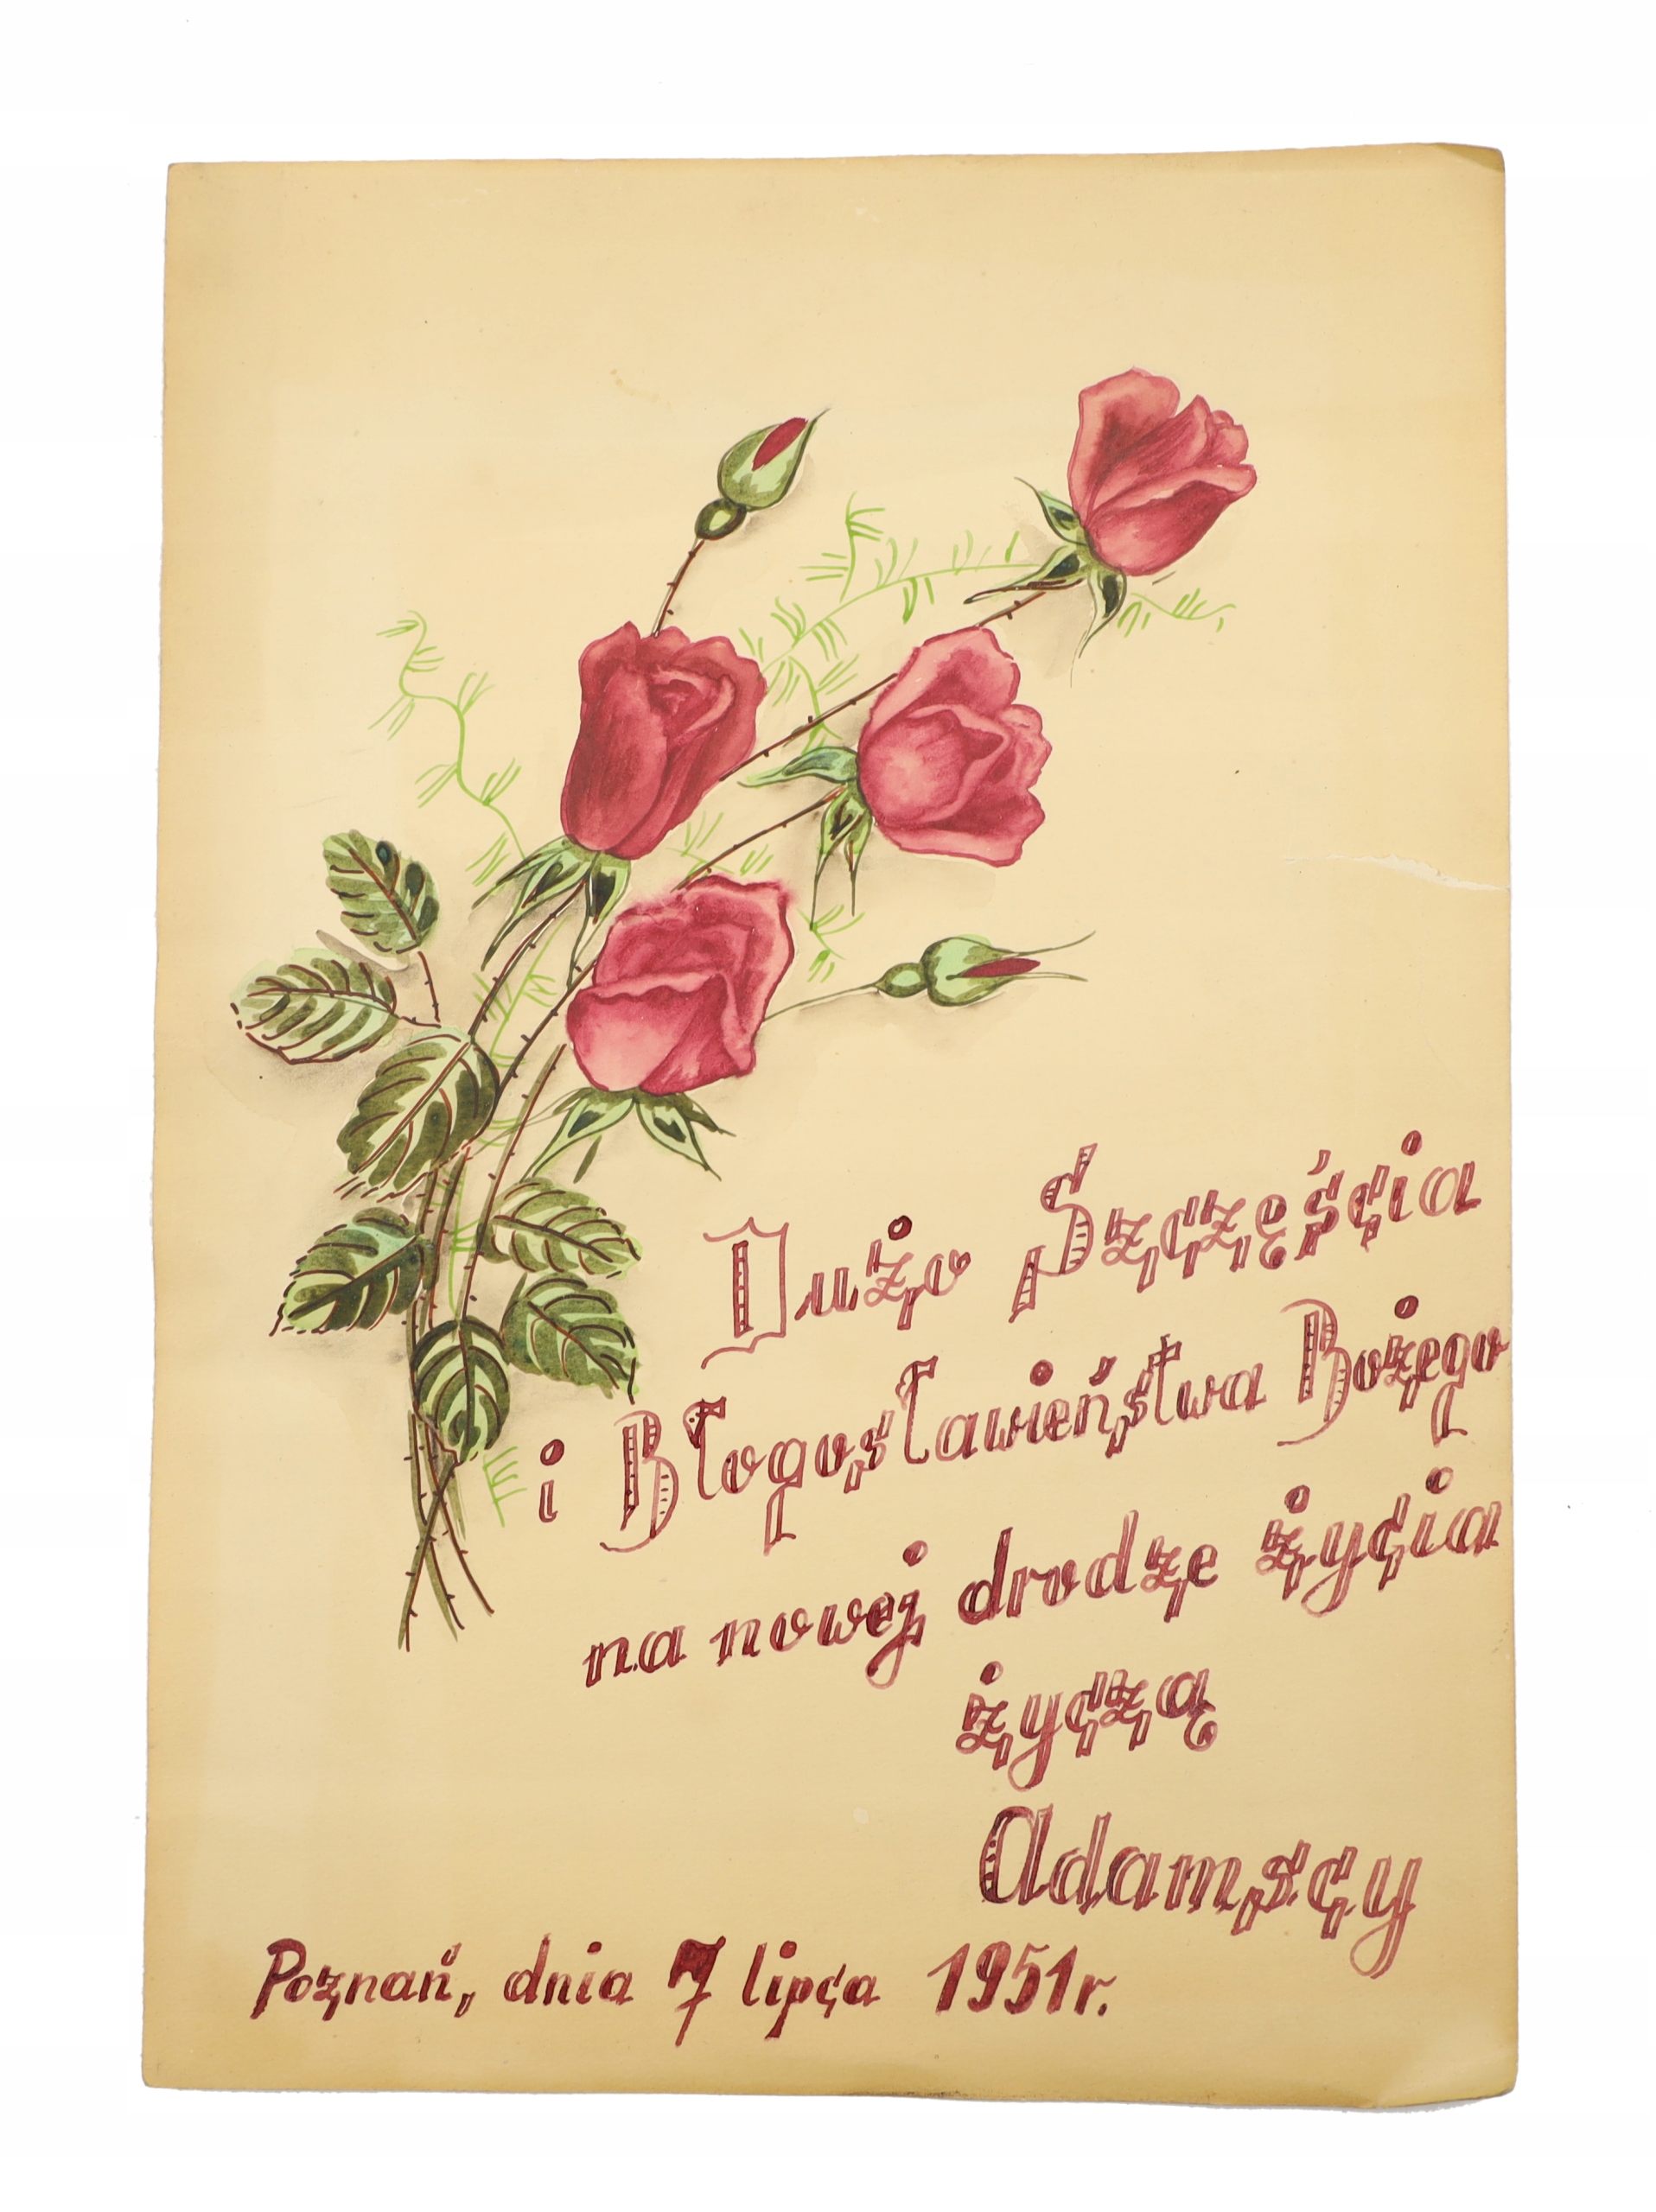 Dużo Szczęścia
i Błogosławieństwa Bożego
na nowej drodze życia
życzą
Adamscy
Poznań, dnia 7 lipca 1951r.